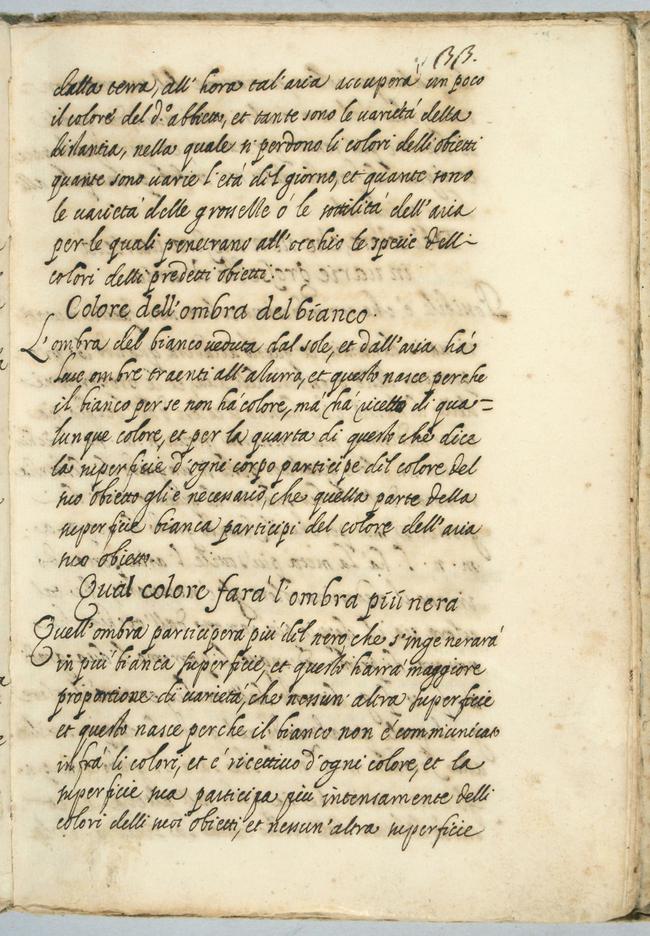 33.
dalla terra, all' hora tal' aria accuperà un poco
il colore del d.º abbietto, et tante sono le varietá della
distantia, nella quale si perdono li colori delli obietti
quante sono varie l'etá del giorno, et quante sono
le varietá delle grosselle ó le sottilitá dell'aria
per le quali penetrano all'occhio le spetie delli
colori delli predetti obietti.
Colore dell'ombra del bianco.
L'ombra del bianco veduta dal sole, et dall'aria há
sue ombre traenti all'alurro, et questo nasce perche
il bianco per se non há colore, má há ricetto di qua=
lunque colore, et per la quarta di questo che dice
la superficie d'ogni corpo participe del colore del
suo obietto gli è necessario, che quella parte della
superficie bianca participi del colore dell'aria
suo obietto.
Qual colore fará l'ombra piú nera
Quell'ombra participerá piú del nero che s'ingenerará
in piú bianca superficie, et questo harrá maggiore
proportione di varietá, che nessun' altra superficie
et questo nasce perche il bianco non è communicato
infrá li colori, et é ricettivo d'ogni colore, et la
superficie sua participa piu intensamente delli
colori delli suoi obietti, et nessun'altra superficie